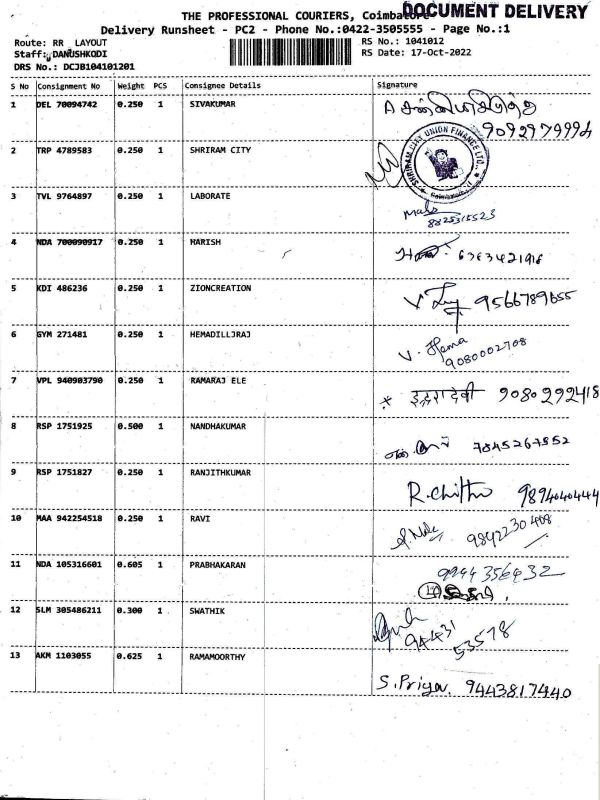 THE PROFESSIONAL COURIERS, Coimbatore
DOCUMENT DELIVERY
Delivery Runsheet - PC2 - Phone No.:0422-3505555 - Page No.:1
Route: RR LAYOUT RS No.: 1041012
Staff: DANUSHKODI RS Date: 17-Oct-2022
DRS No.: DCJB104101201
S No Consignment No Weight PCS Consignee Details Signature
1 DEL 70094742 0.250 1 SIVAKUMAR A
9092979994
2 TRP 4789583 0.250 1 SHRIRAM CITY
SHRIRAM CITY UNION FINANCE LTD.
3 TVL 9764897 0.250 1 LABORATE Mala
8825315523
4 NDA 700090917 0.250 1 HARISH 6363421916
5 KDI 486236 0.250 1 ZIONCREATION V 9566789655
6 GYM 271481 0.250 1 HEMADILLJRAJ V. Hema
9080002708
7 VPL 940903790 0.250 1 RAMARAJ ELE 9080292418
8 RSP 1751925 0.500 1 NANDHAKUMAR 7845267552
9 RSP 1751827 0.250 1 RANJITHKUMAR R.Chithu 9894040444
10 MAA 942254518 0.250 1 RAVI 9842230408
11 NDA 105316601 0.605 1 PRABHAKARAN 9944356432
12 SLM 305486211 0.300 1 SWATHIK 94431
53578
13 AKM 1103055 0.625 1 RAMAMOORTHY S. Priya. 9443817440